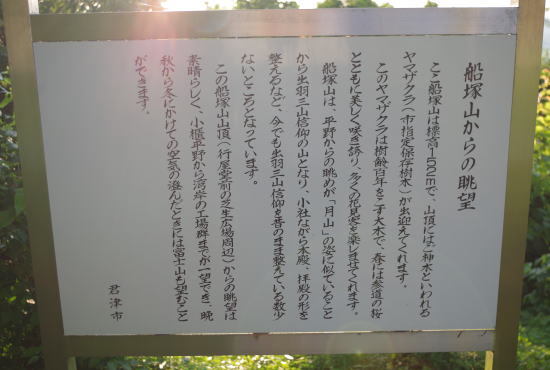 船塚山からの眺望
ここ船塚山は標高152mで、山頂にはご神木といわれる
ヤマザクラ(市指定保存樹木)が出迎えてくれます。
このヤマザクラは樹齢百年をこす大木で、春には参道の桜
とともに美しく咲き誇り、多くの花見客を楽しませてくれます。
船塚山は、平野からの眺めが「月山」の姿に似ていること
から出羽三山信仰の山となり、小社ながら本殿、拝殿の形を
整えるなど、今でも出羽三山信仰を昔のまま整えている数少
ないところとなっています。
この船塚山山頂(行屋堂前の芝生広場周辺)からの眺望は
素晴らしく、小櫃平野から湾岸の工場群までが一望でき、晩
秋から冬にかけての空気の澄んだときには富士山も望むこと
ができます。
君津市